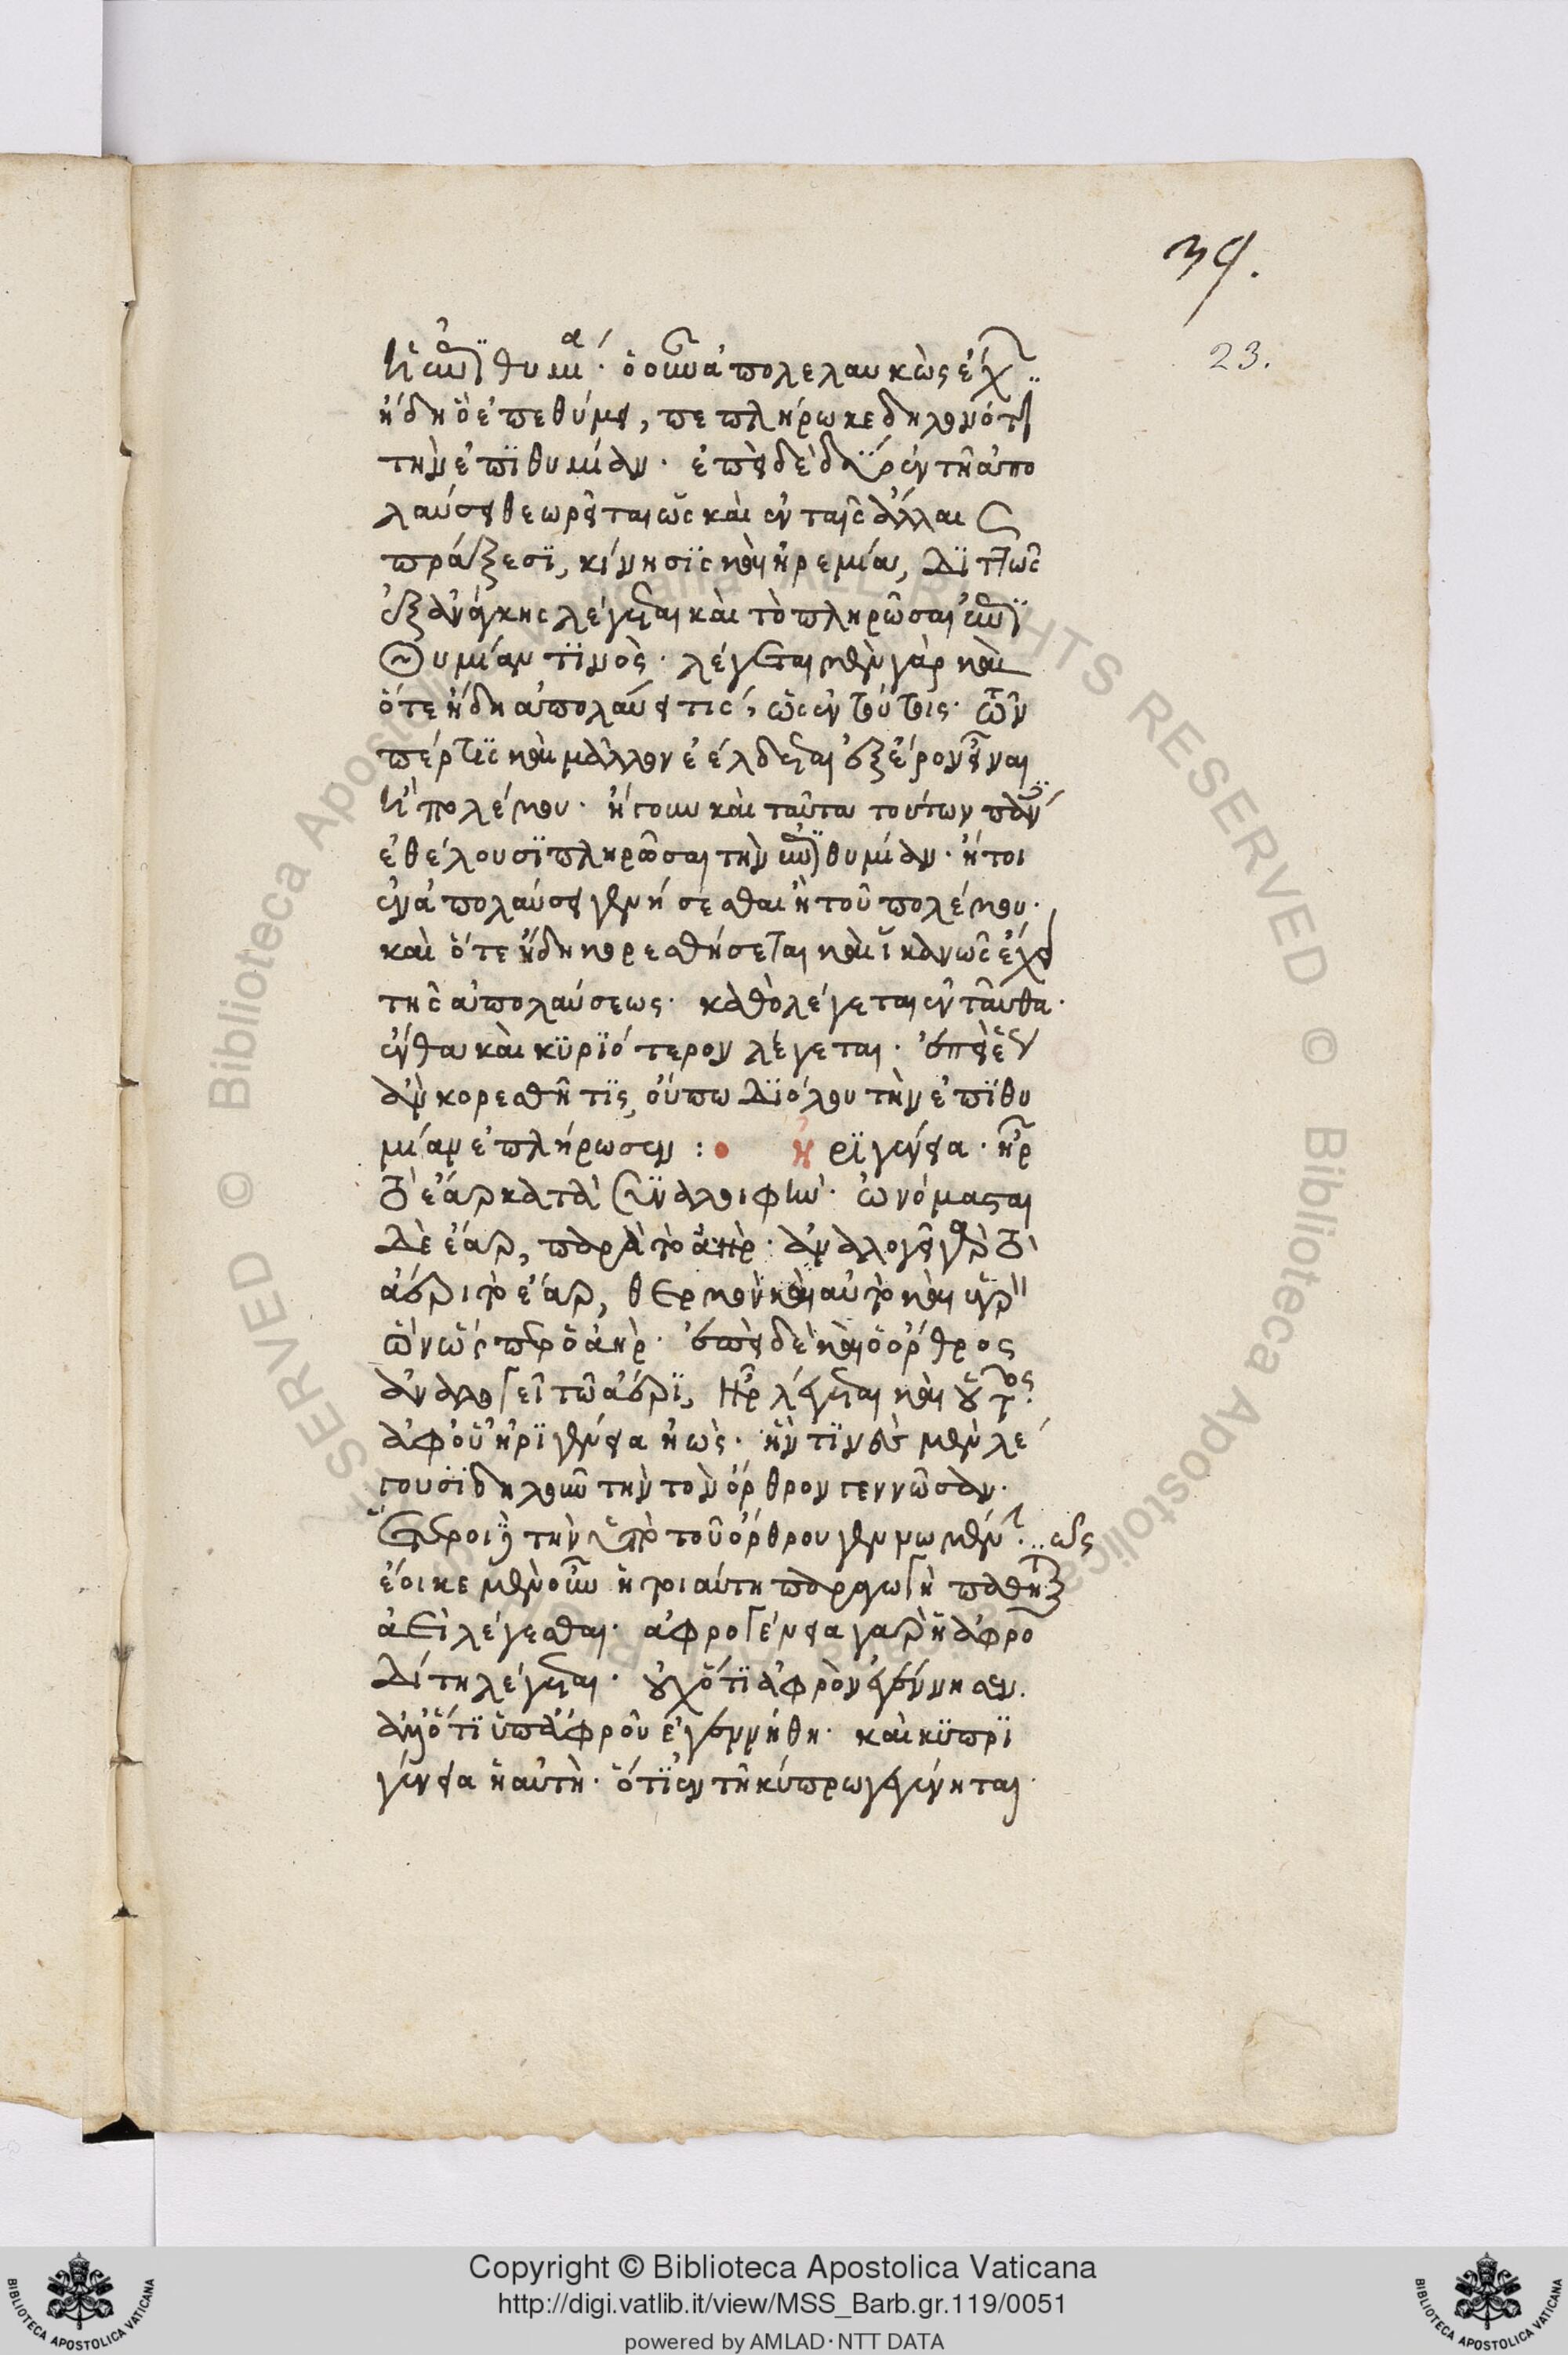 39.
23.
ἡ ἐπιθυμία· ὁ οὖν ἀπολελαυκὼς ἔχει
ἤδη ὃ ἐπεθύμει, πεπλήρωκε δηλονότι
τὴν ἐπϊθυμίαν· ἐπεὶ δὲ ἐν τῇ ἀπο
λαύσει θεωρεῖται ὡς καὶ ἐν ταῖς ἄλλαις
πράξεσϊ, κίνησϊς καὶ ἠρεμία, διττῶς
ἐξ ἀνάγκης λέγεται καὶ τὸ πληρῶσαι ἐπι
θυμίαν τϊνὸς· λέγεται μὲν γὰρ καὶ
ὅτε ἤδη ἀπολαύει τις, ὡς ἐν τούτοις· ὧν
πέρ τϊς καὶ μᾶλλον ἐέλδεται ἐξ ἔρον εἶναι
ἢ πολέμου· ἤγουν καὶ ταῦτα τούτων
ἐθέλουσϊ πληρῶσαι τὴν ἐπιθυμίαν· ἤτοι
ἐν ἀπολαύσει γενήσεσθαι ἢ τοῦ πολέμου·
καὶ ὅτε ἤδη κορεσθήσεται καὶ ἱκανῶς ἔχει
τῆς ἀπολαύσεως· καθὸ λέγεται ἐνταῦθα·
ἔνθα καὶ κϋρϊότερον λέγεται· ἐπεὶ
ἂν κορεσθῇ τϊς, οὔπω δϊόλου τὴν ἐπϊθυ
μίαν ἐπλήρωσεν : ἠρϊγένεια· ἦρ
τὸ ἔαρ κατὰ συναλοιφὴν· ὠνόμασται
δὲ ἔαρ, παρὰ τὸ ἀὴρ· ἀναλογεῖ γὰρ τῷ
ἀέρι τὸ ἔαρ, θερμὸν καὶ αὐτὸ καὶ ὑγρὸν
ὂν ὥσπερ ὁ ἀὴρ· ἐπεὶ δὲ καὶ ὁ ὄρθρος
ἀναλογεῖ τῶ ἀέρϊ, ἦρ λέγεται καὶ οὗτος·
ἀφ' οὗ ἠρϊγένεια ἠὼς· ἣν τϊνὲς μὲν λέ
γουσϊ δηλοῦν τὴν τὸν ὄρθρον γεννῶσαν·
ἕτεροι δὲ τὴν ὑπὸ τοῦ ὄρθρου γεννωμένην· ὡς
ἔοικε μὲν οὖν ἡ τοιαύτη παραγωγὴ παθητικῶς
ἀεὶ λέγεσθαι· ἀφρογένεια γὰρ ἡ ἀφρο
δίτη λέγεται· οὐχ ὅτϊ ἀφρὸν ἐγέννησεν·
ἀλλ' ὅτϊ ὑπ' ἀφροῦ ἐγεννήθη· καὶ κϋπρϊ
γένεια ἡ αὐτὴ· ὅτϊ ἐν τῇ κύπρω γεγένηται·
Copyright © Biblioteca Apostolica Vaticana
http://digi.vatlib.it/view/MSS_Barb.gr.119/0051
powered by AMLAD · NTT DATA